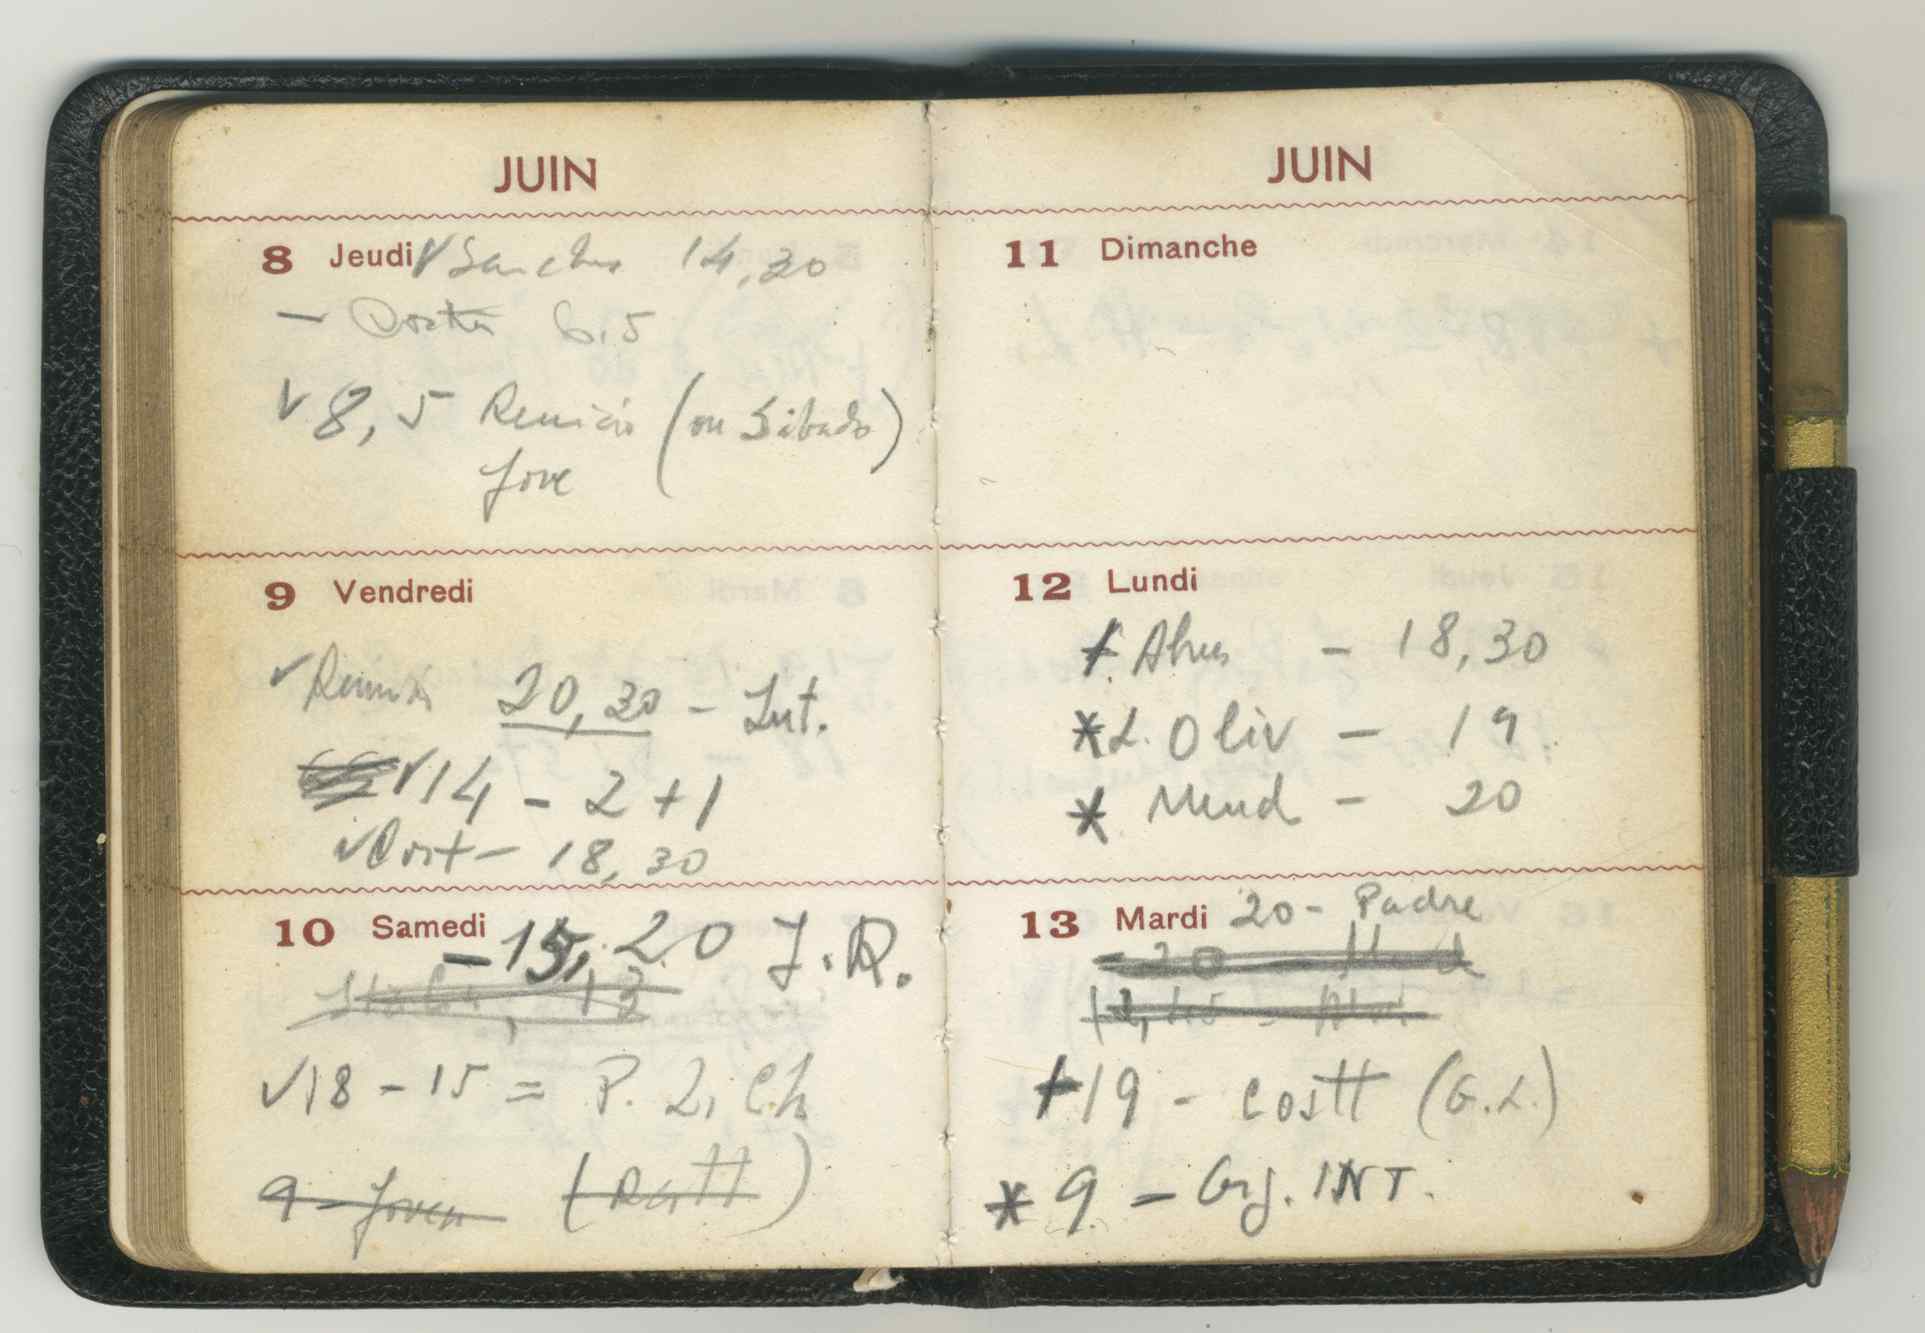 JUIN
8 Jeudi Sanches 14,30
— Costa 6.5
8,5 Reunião (ou Sábado)
Jove
9 Vendredi
Reunião 20,30 – Int.
14 – 2 + 1
Cost – 18,30
10 Samedi – 15,20 J.R.
18 – 15 = P. 2, Ch
9 – Joven
JUIN
11 Dimanche
12 Lundi
– 18,30
* L. Oliv – 19
* Mend – 20
13 Mardi 20 – Padre
+ 19 – Costt (G.L.)
* 9 – INT.